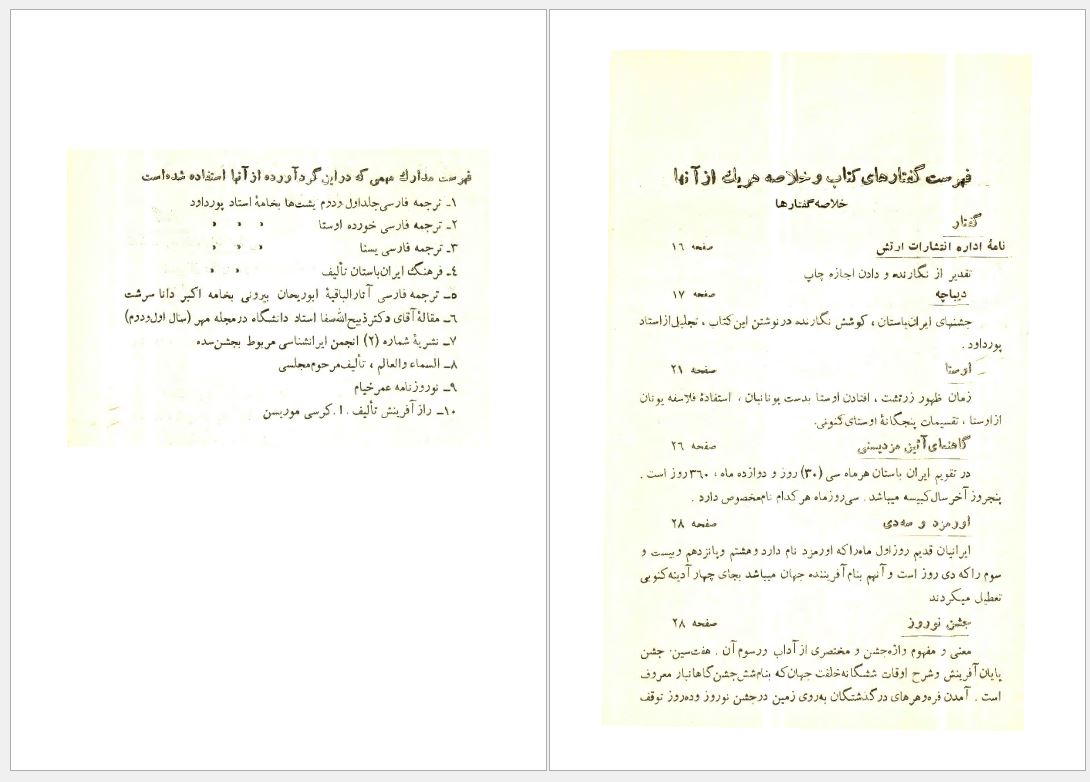 فهرست گفتارهای کتاب و خلاصه هریك از آنها
خلاصه گفتارها
گفتار
نامهٔ اداره انتشارات ارتش صفحه ۱۶
تقدیر از نگارنده و دادن اجازه چاپ
دیباچه صفحه ۱۷
جشنهای ایران‌باستان ، کوشش نگارنده درنوشتن این‌کتاب ، تجلیل‌ازاستاد
پورداود .
اوستا صفحه ۲۱
زمان ظهور زرتشت ، افتادن اوستا بدست یونانیان ، استفادهٔ فلاسفه یونان
ازاوستا ، تقسیمات پنجگانهٔ اوستای‌کنونی.
گاهنمای آئین مزدیسنی صفحه ۲۶
در تقویم ایران باستان هرماه سی (۳۰) روز و دوازده ماه ، ۳۶۰ روز است .
پنجروز آخر سال‌کبیسه میباشد . سی‌روزماه هرکدام نام‌مخصوص دارد .
اورمزد و سه‌دی صفحه ۲۸
ایرانیان قدیم روزاول ماه‌راکه اورمزد نام دارد وهشتم وپانزدهم وبیست و
سوم راکه دی روز است و آنهم بنام آفریننده جهان میباشد بجای چهار آدینه‌کنونی
تعطیل میکردند
جشن نوروز صفحه ۲۸
معنی و مفهوم واژه‌جشن و مختصری از آداب ورسوم آن . هفت‌سین. جشن
پایان آفرینش وشرح اوقات ششگانه‌خلقت جهان‌که بنام‌شش‌جشن‌گاهانبار معروف
است . آمدن فره‌وهرهای درگذشتگان به‌روی زمین درجشن نوروز وده‌روز توقف
فهرست مدارك مهمی که در این گردآورده از آنها استفاده شده‌است
۱ـ ترجمه فارسی‌جلداول ودوم یشت‌ها بخامهٔ استاد پورداود
۲ـ ترجمه فارسی خورده اوستا » » »
۳ـ ترجمه فارسی یسنا » » »
٤ـ فرهنگ ایران‌باستان تألیف » »
٥ـ ترجمه فارسی آثارالباقیهٔ ابوریحان بیرونی بخامه اکبر دانا سرشت
٦ـ مقالهٔ آقای دکترذبیح‌الله‌صفا استاد دانشگاه درمجله مهر (سال اول‌ودوم)
۷ـ نشریهٔ شماره (۲) انجمن ایرانشناسی مربوط بجشن‌سده
۸ـ السماء والعالم ، تألیف‌مرحوم‌مجلسی
۹ـ نوروزنامه عمرخیام
۱۰ـ راز آفرینش تألیف . ا . کرسی موریسن